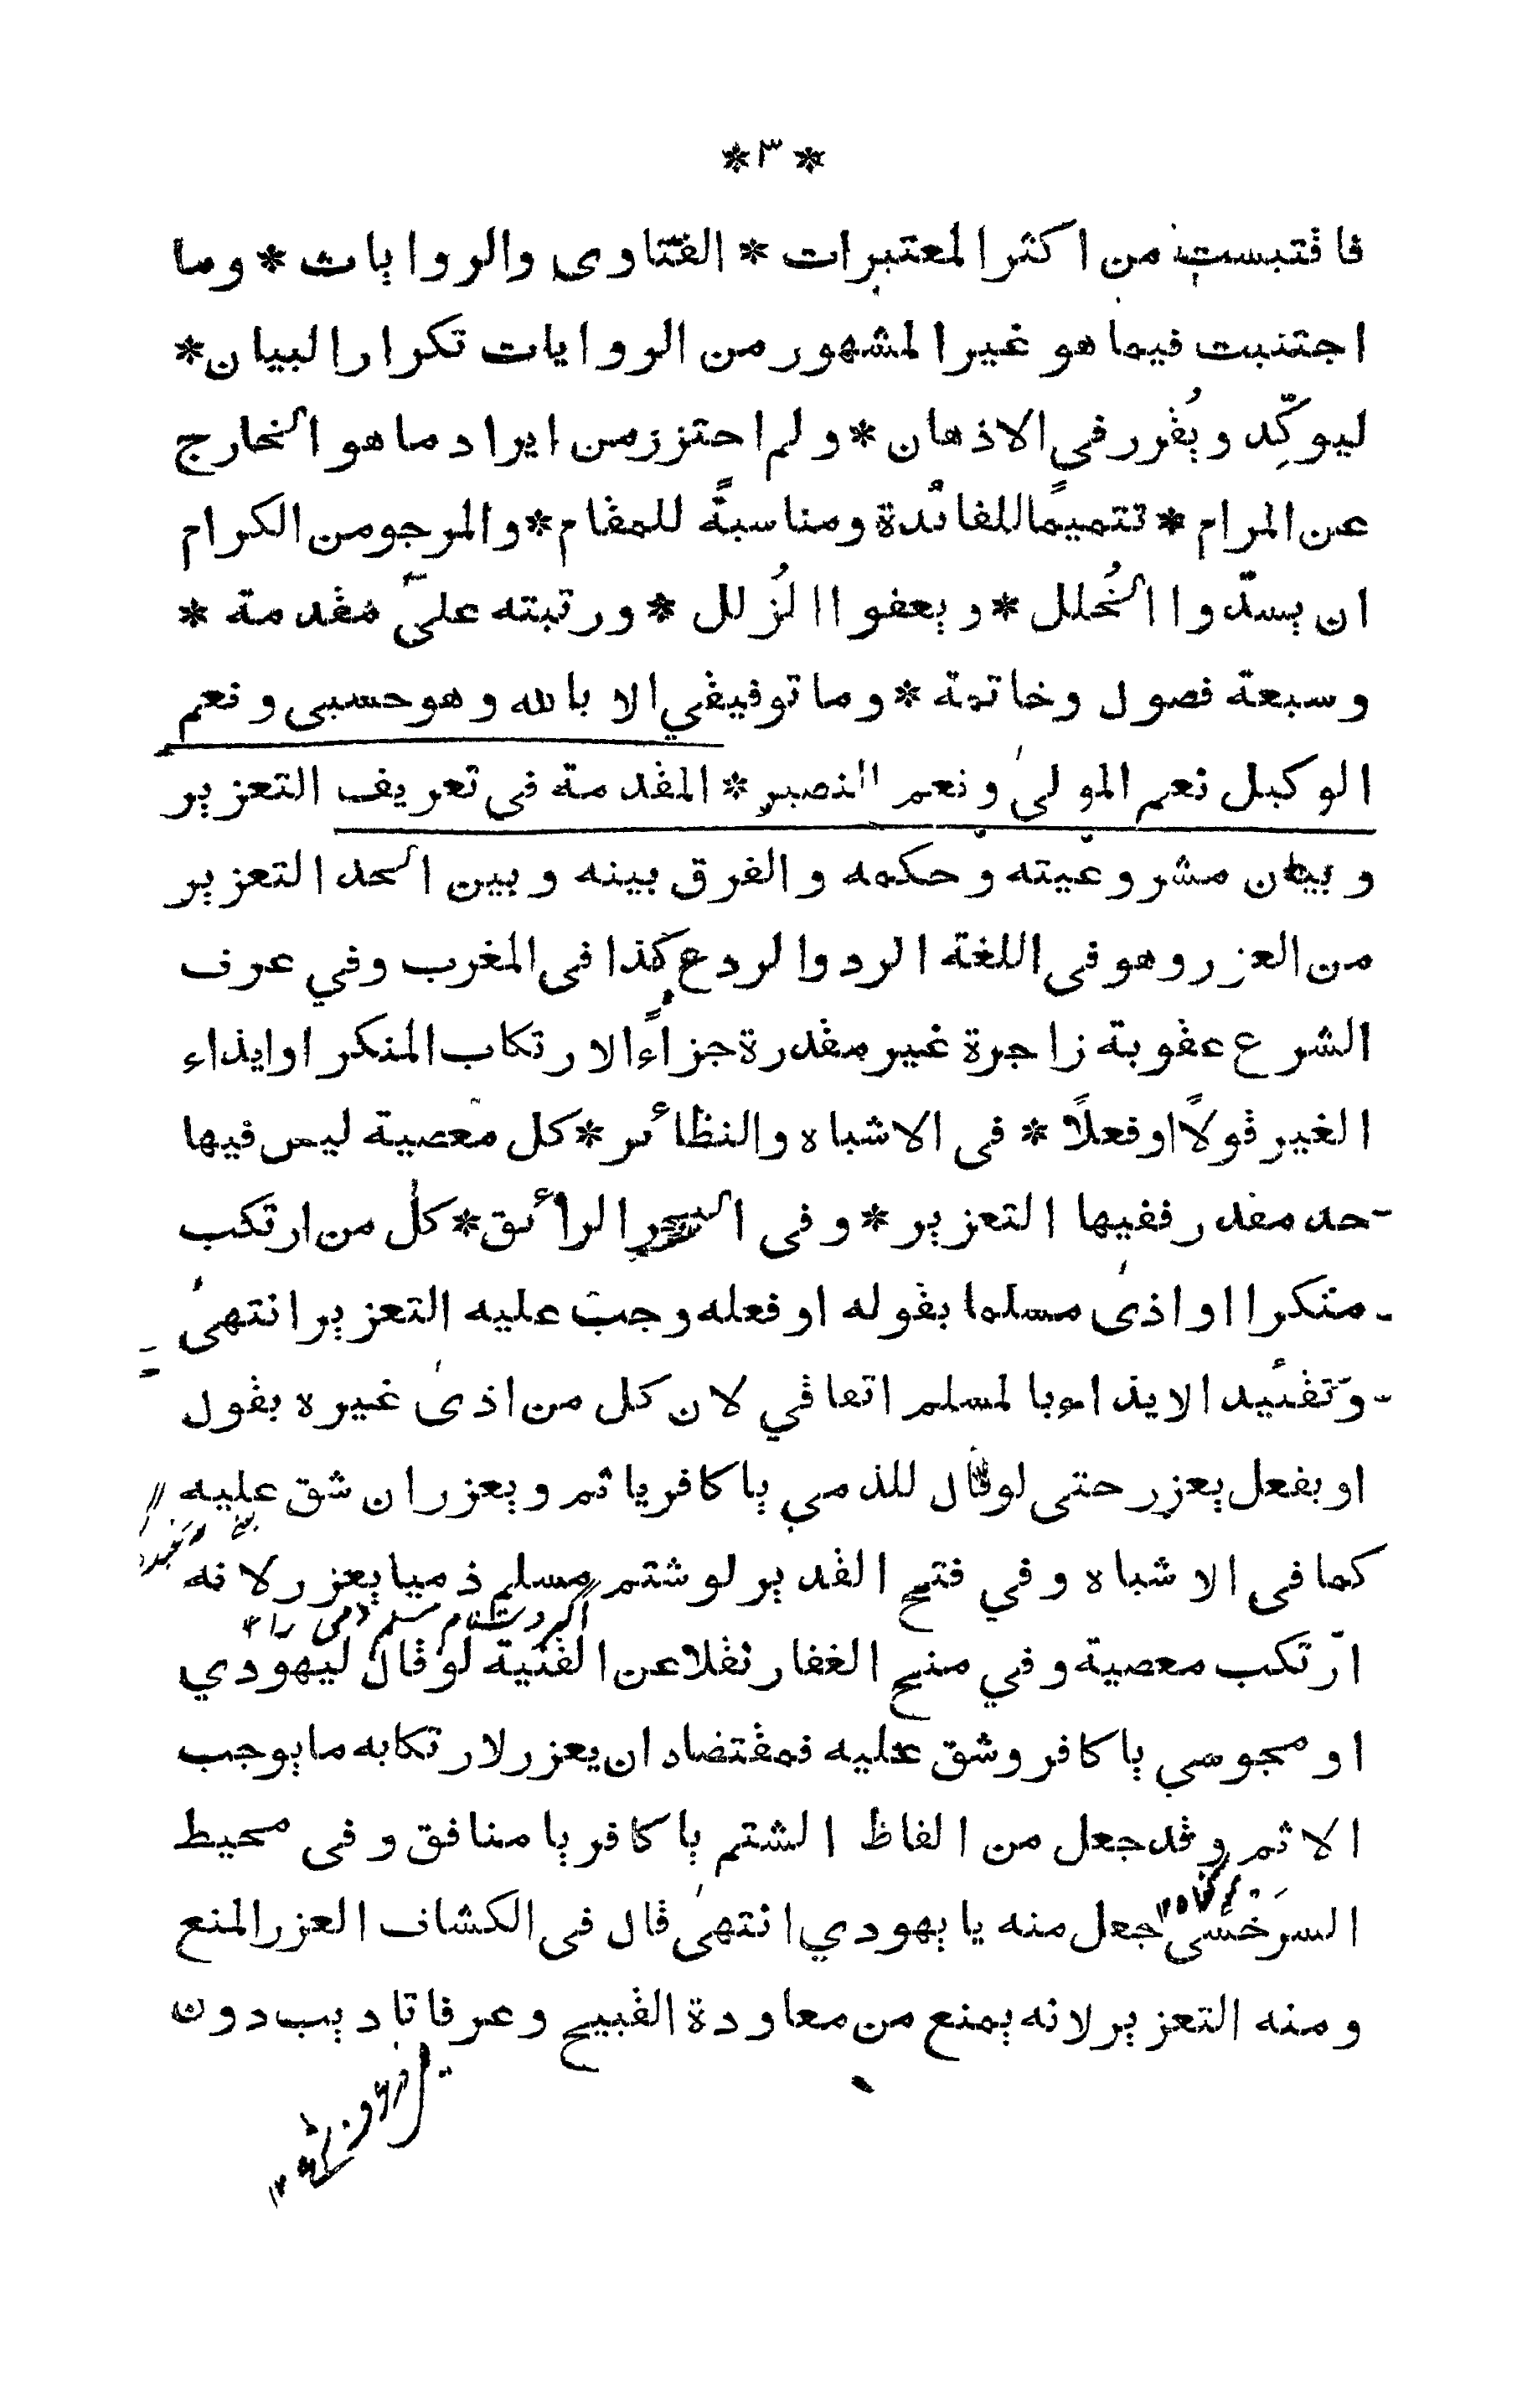 * ٣ *
فاقتبست من اكثر المعتبرات * الفتاوى والروايات * وما
اجتنبت فيما هو غير المشهور من الروايات تكرار البيان *
ليوكّد ويُقرر في الاذهان * ولم احترز من ايراد ما هو الخارج
عن المرام * تتميمًا للفائدة ومناسبةً للمقام * والمرجو من الكرام
ان يسدّوا الخُلل * ويعفوا الزُلل * ورتبته على مقدمة *
وسبعة فصول وخاتمة * وما توفيقي الا بالله وهو حسبى ونعم
الوكيل نعم المولى ونعم النصير * المقدمة فى تعريف التعزير
وبيان مشروعيته وحكمه والفرق بينه وبين الحد التعزير
من العزر وهو فى اللغة الرد والردع كذا فى المغرب وفي عرف
الشرع عقوبة زاجرة غير مقدرة جزاءً الارتكاب المنكر او ايذاء
الغير قولًا او فعلًا * فى الاشباه والنظائر * كل معصية ليس فيها
حد مقدر ففيها التعزير * وفى البحر الرائق * كل من ارتكب
منكرا او اذى مسلما بقوله او فعله وجب عليه التعزير انتهى
وتقئيد الايذاء بالمسلم اتفاقي لان كل من اذى غيره بقول
او بفعل يعزر حتى لو قال للذمي يا كافر ياثم ويعزر ان شق عليه
كما فى الاشباه وفي فتح القدير لو شتم مسلم ذميا يعزر لانه
ارتكب معصية وفي منح الغفار نقلا عن القنية لو قال ليهودي
او مجوسي يا كافر وشق عليه فمقتضاه ان يعزر لارتكابه ما يوجب
الاثم وقد جعل من الفاظ الشتم يا كافر يا منافق وفى محيط
السرخسى جعل منه يا يهودي انتهى قال فى الكشاف العزر المنع
ومنه التعزير لانه يمنع من معاودة القبيح وعرفا تاديب دون